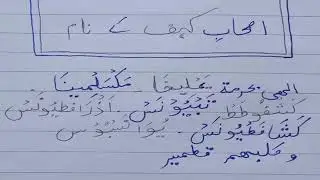 اصحاب کہف کے نام
الٰہی بحرمة یملیخا مکسلمینا۔
کشفوطط تبیونس اذرفطیونس
کشافطیونس۔ یوانسبوس
و کلبہم قطمیر